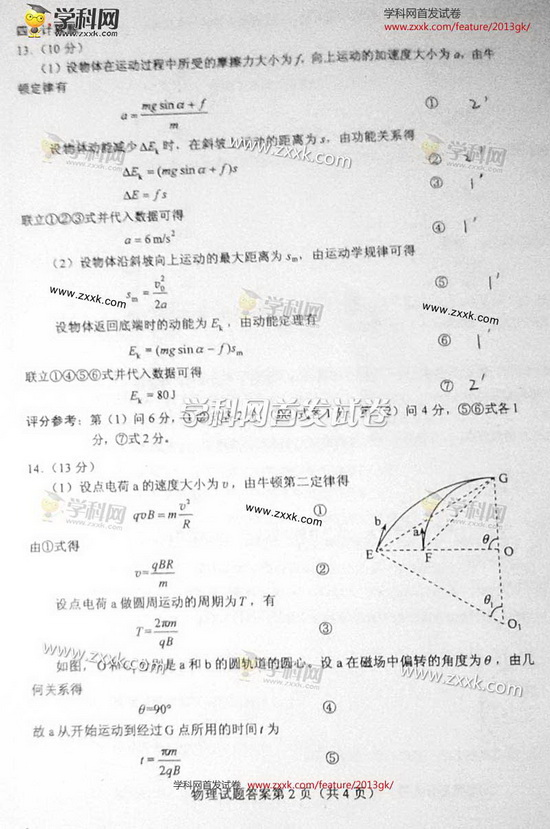 学科网
www.zxxk.com
学科网首发试卷
www.zxxk.com/feature/2013gk/
四
13.（10 分）
（1）设物体在运动过程中所受的摩擦力大小为 f, 向上运动的加速度大小为 a, 由牛
顿定律有
a = (mg sin α + f)/m ① 2'
设物体动能减少 ΔEk 时，在斜坡上运动的距离为 s，由功能关系得
ΔEk = (mg sin α + f)s ② 2'
ΔE = fs ③ 1'
联立①②③式并代入数据可得
a = 6 m/s² ④ 1'
（2）设物体沿斜坡向上运动的最大距离为 sm，由运动学规律可得
sm = v0²/2a ⑤ 1'
设物体返回底端时的动能为 Ek，由动能定理有
Ek = (mg sin α − f)sm ⑥ 1'
联立①④⑤⑥式并代入数据可得
Ek = 80 J ⑦ 2'
评分参考：第（1）问 6 分，
2）问 4 分，⑤⑥式各 1
分，⑦式 2 分。
学科网首发试卷
14.（13 分）
（1）设点电荷 a 的速度大小为 v，由牛顿第二定律得
qvB = m v²/R ①
由①式得
v= qBR/m ②
设点电荷 a 做圆周运动的周期为 T，有
T= 2πm/qB ③
G
b
a
E
F
θ
O
θ1
O1
如图，O 和 O1 分别是 a 和 b 的圆轨道的圆心。设 a 在磁场中偏转的角度为 θ，由几
何关系得
θ=90° ④
故 a 从开始运动到经过 G 点所用的时间 t 为
t = πm/2qB ⑤
学科网首发试卷 www.zxxk.com/feature/2013gk/
物理试题答案第 2 页（共 4 页）
学科网
www.zxxk.com
学科网
www.zxxk.com
www.zxxk.com
www.zxxk.com
学科网
www.zxxk.com
www.zxxk.com
学科网
www.zxxk.com
www.zxxk.com
www.zxxk.com
www.zxxk.com